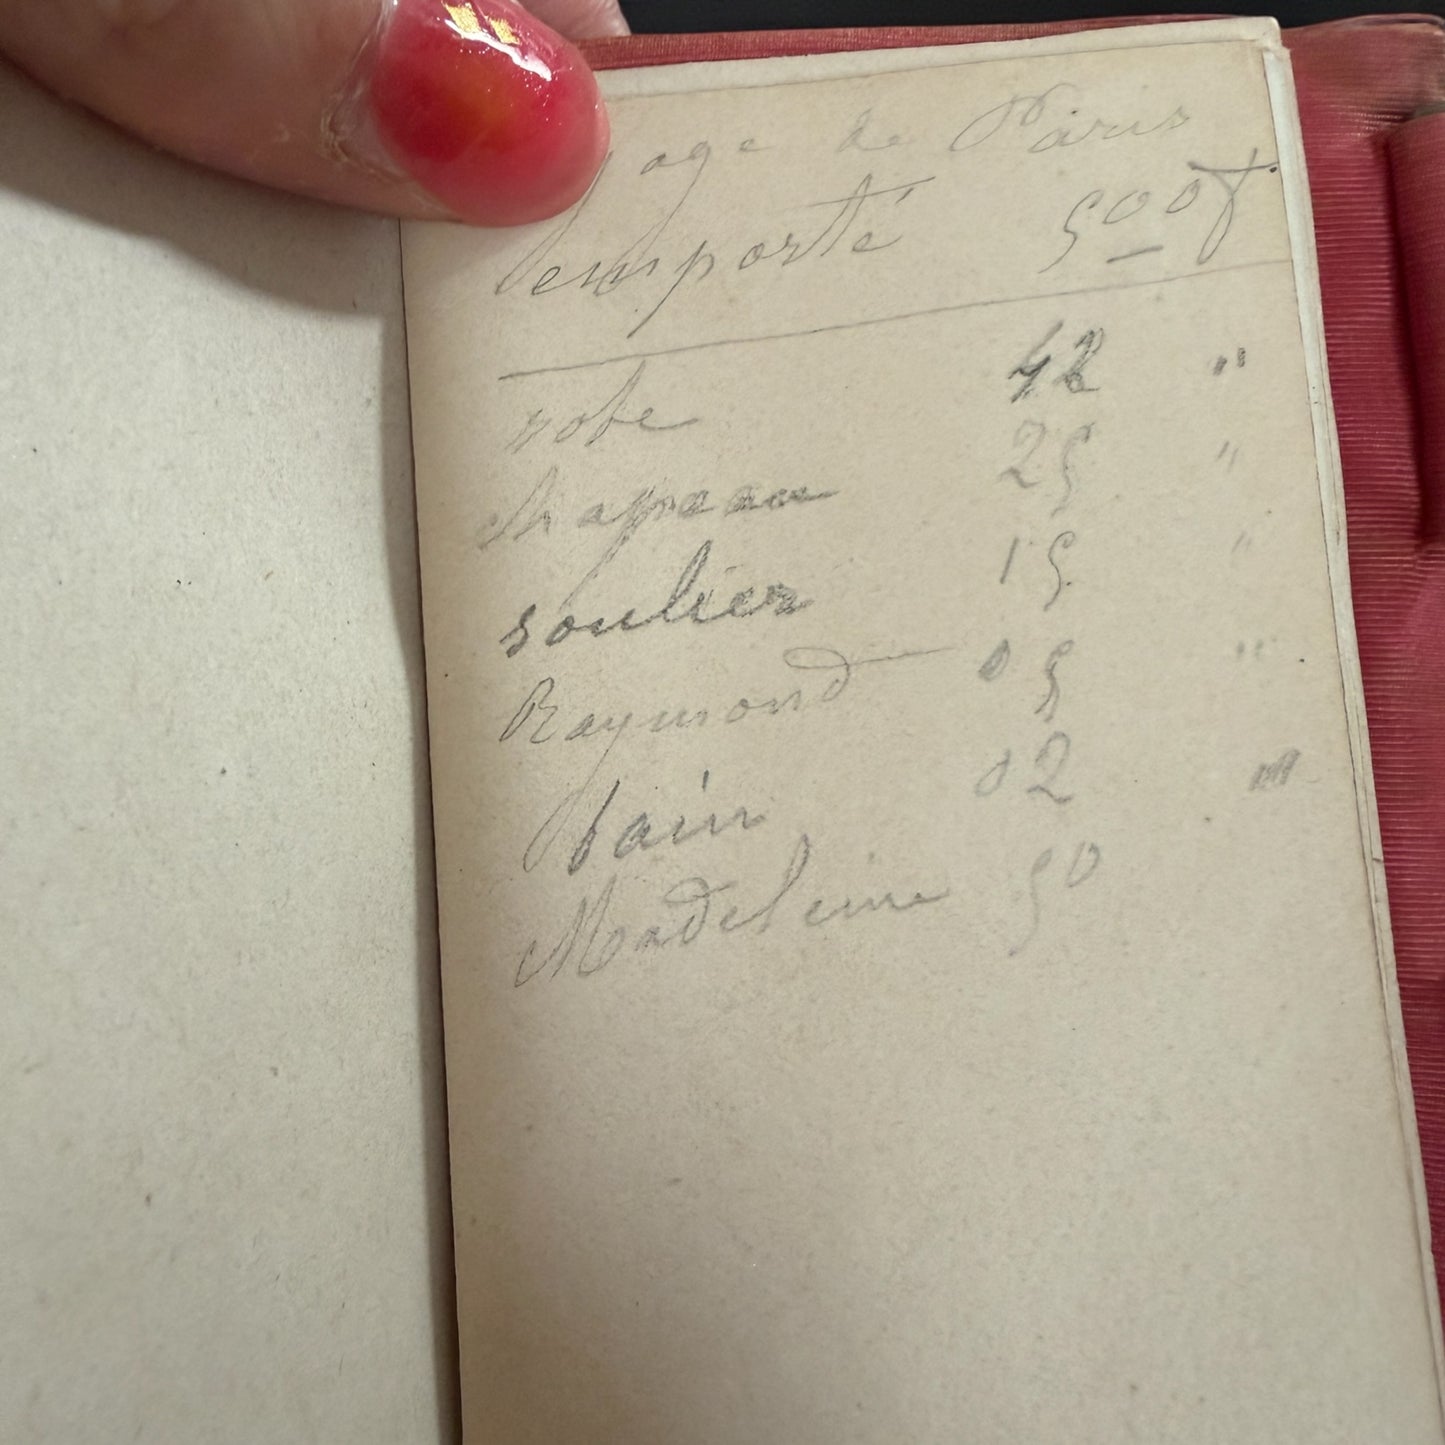 yage de Paris
emporté 500f
robe 48 "
chapeau 25 "
soulier 15 "
Raymond 05 "
bain 02 "
Madeleine 50